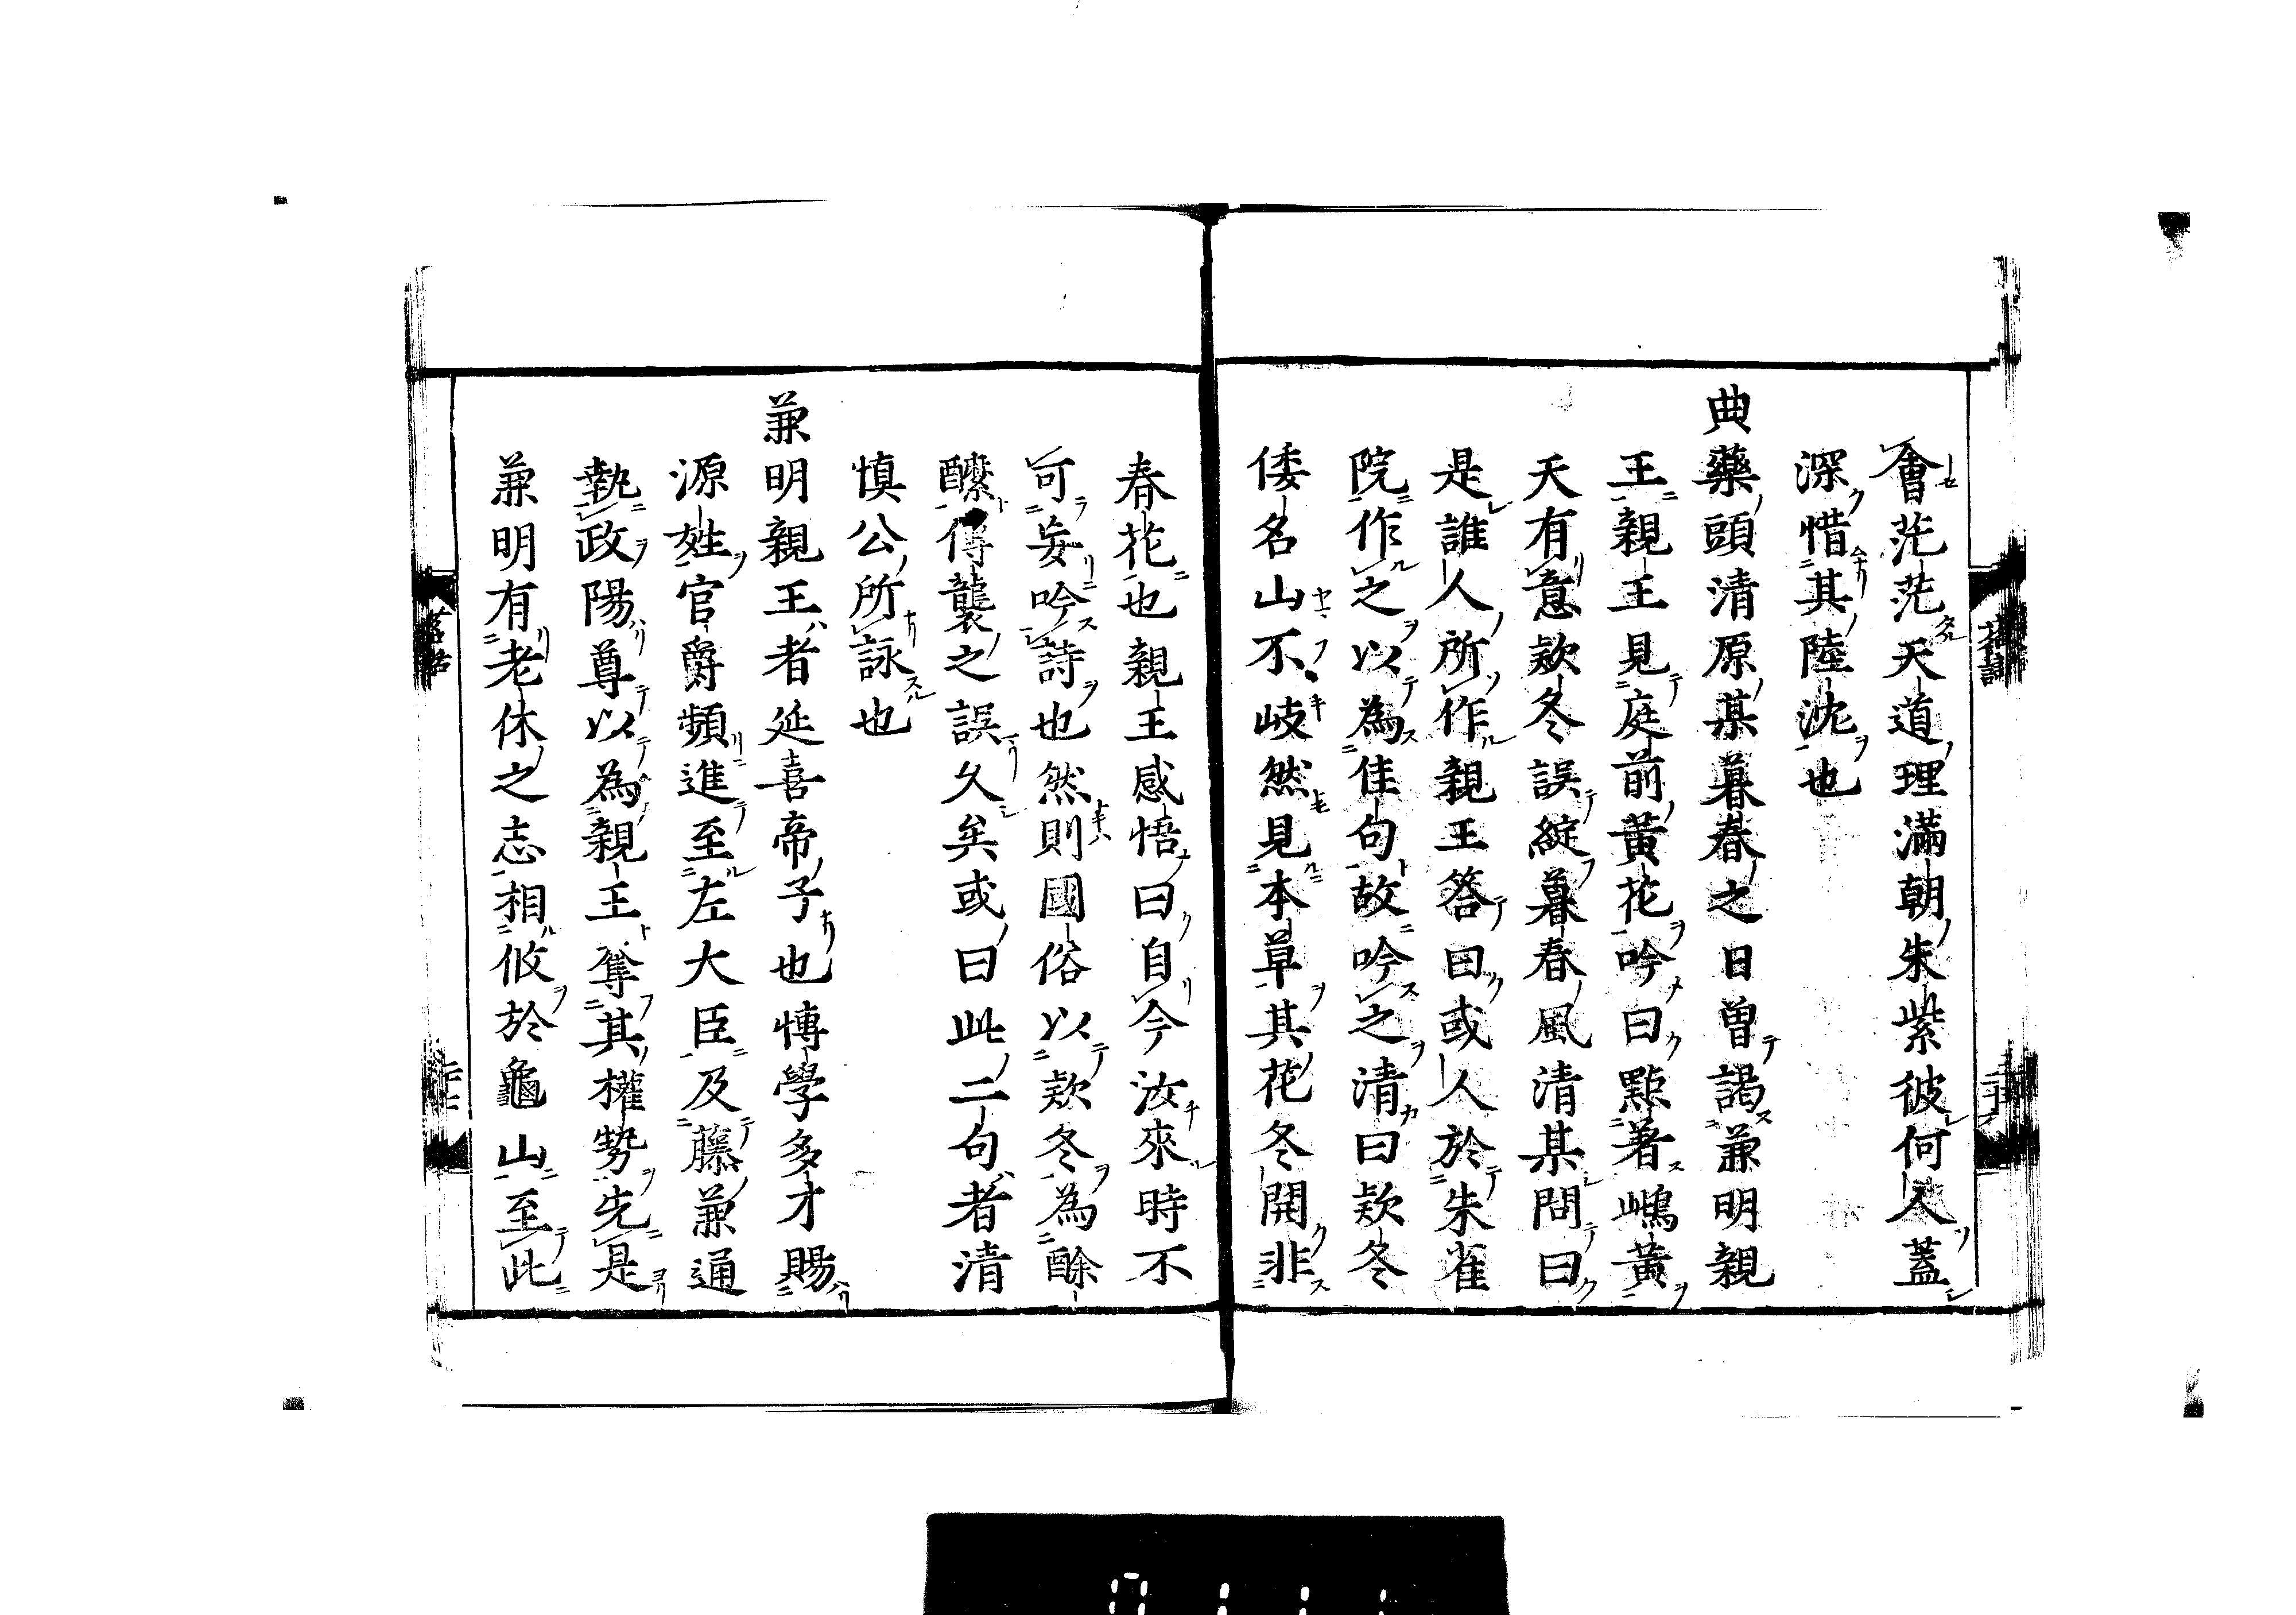 會茫茫天道理滿朝朱紫彼何人蓋
深惜其陸沈也
典藥頭清原某暮春之日曽謁兼明親
王親王見庭前黃花吟曰點著鵶黃
天有意欵冬誤綻暮春風清某問曰
是誰人所作親王答曰或人於朱雀
院作之以為佳句故吟之清曰欵冬
倭名山不々岐然見本草其花冬開非
春花也親王感悟曰自今汝來時不
可妄吟詩也然則國俗以欵冬為酴
醾傳襲之誤久矣或曰此二句者清
慎公所詠也
兼明親王者延喜帝子也愽學多才賜
源姓官爵頻進至左大臣及藤兼通
執政陽尊以為親王奪其權勢先是
兼明有老休之志相攸於龜山至此